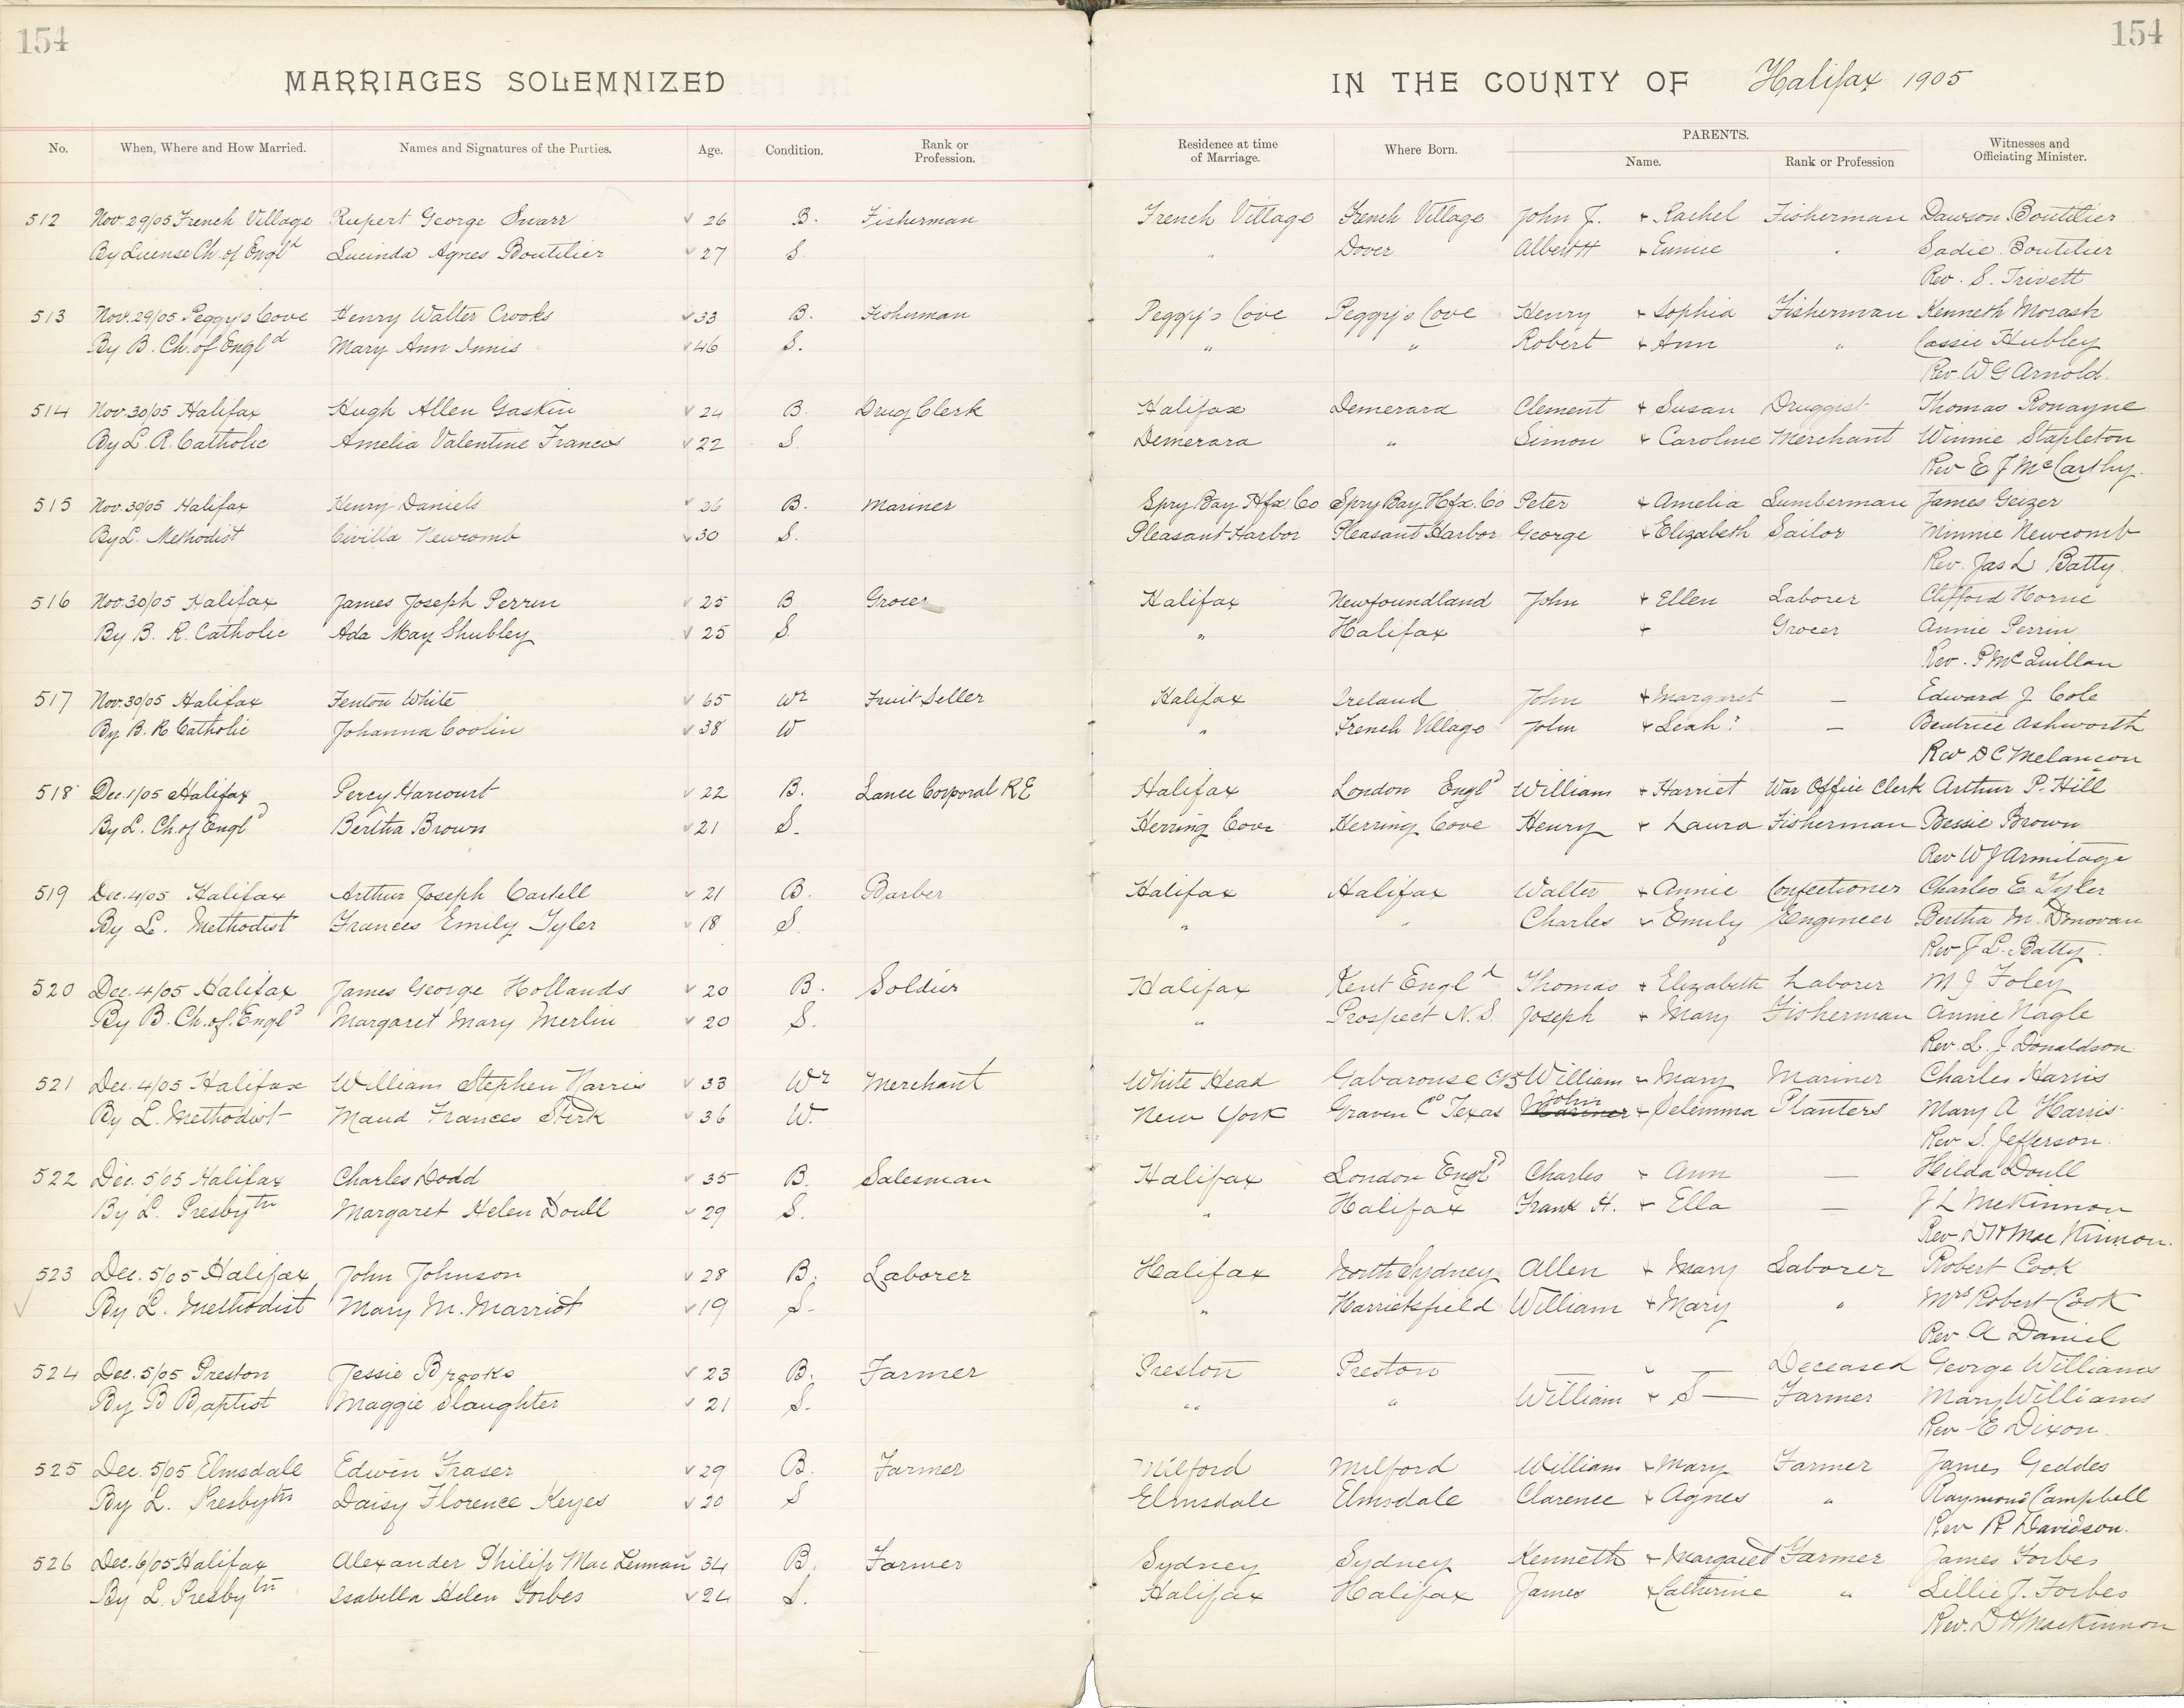 154
154
MARRIAGES SOLEMNIZED IN THE COUNTY OF Halifax 1905
PARENTS.
No. When, Where and How Married. Names and Signatures of the Parties. Age. Condition. Rank or Profession. Residence at time of Marriage. Where Born. Name. Rank or Profession Witnesses and Officiating Minister.
512 Nov. 29/05 French Village Rupert George Snarr 26 B. Fisherman French Village French Village John J. + Rachel Fisherman Dawson Boutilier
By License Ch. of Engld Lucinda Agnes Boutilier 27 S. " Dover Albert H + Eunice " Sadie Boutilier
Rev. S. Trivett
513 Nov. 29/05 Peggy's Cove Henry Walter Crooks 33 B. Fisherman Peggy's Cove Peggy's Cove Henry + Sophia Fisherman Kenneth Morash
By B. Ch. of Engld Mary Ann Innis 46 S. " " Robert + Ann " Cassie Hubley
Rev. W G Arnold.
514 Nov. 30/05 Halifax Hugh Allen Gaskin 24 B. Drug Clerk Halifax Demerara Clement + Susan Druggist Thomas Ronayne
By L R. Catholic Amelia Valentine Francis 22 S. Demerara " Simon + Caroline Merchant Winnie Stapleton
Rev E J McCarthy.
515 Nov. 30/05 Halifax Henry Daniels 26 B. Mariner Spry Bay Hfx. Co Spry Bay Hfx. Co Peter + Amelia Lumberman James Geizer
By L. Methodist Civilla Newcomb 30 S. Pleasant Harbor Pleasant Harbor George + Elizabeth Sailor Minnie Newcomb
Rev. Jas L Batty.
516 Nov. 30/05 Halifax James Joseph Perrin 25 B Grocer Halifax Newfoundland John + Ellen Laborer Clifford Horne
By B. R. Catholic Ada May Shubley 25 S. " Halifax + Grocer Annie Perrin
Rev. P McQuillan
517 Nov. 30/05 Halifax Fenton White 65 Wr Fruit Seller Halifax Ireland John + Margaret — Edward J. Cole
By B. R Catholic Johanna Coolin 38 W " French Village John + Leah? — Beatrice Ashworth
Rev D C Melancon
518 Dec. 1/05 Halifax Percy Harcourt 22 B. Lance Corporal R E Halifax London Engld William + Harriet War Office Clerk Arthur P. Hill
By L. Ch. of Engld Bertha Brown 21 S. Herring Cove Herring Cove Henry + Laura Fisherman Bessie Brown
Rev W J Armitage
519 Dec. 4/05 Halifax Arthur Joseph Castell 21 B. Barber Halifax Halifax Walter + Annie Confectioner Charles E Tyler
By L. Methodist Frances Emily Tyler 18 S. " " Charles + Emily Engineer Bertha M. Donovan
Rev J L. Batty.
520 Dec. 4/05 Halifax James George Hollands 20 B. Soldier Halifax Kent Engld Thomas + Elizabeth Laborer M J Foley
By B. Ch. of. Engld Margaret Mary Merlin 20 S. " Prospect N.S. Joseph + Mary Fisherman Annie Nagle
Rev. L. J. Donaldson.
521 Dec. 4/05 Halifax William Stephen Harris 33 Wr Merchant White Head Gabarouse CB William + Mary Mariner Charles Harris
By L. Methodist Maud Frances Stirk 36 W. New York Graven Co Texas Mariner John + Selemma Planters Mary A Harris.
Rev S. Jefferson.
522 Dec. 5/05 Halifax Charles Dodd 35 B. Salesman Halifax London Engld Charles + Ann — Hilda Doull
By L. Presbytn Margaret Helen Doull 29 S. " Halifax Frank H. + Ella — J L McKinnon
Rev. D H MacKinnon.
523 Dec. 5/05 Halifax John Johnson 28 B. Laborer Halifax North Sydney Allen + Mary Laborer Robert Cook
By L. Methodist Mary M. Marriot 19 S. " Harrietsfield William + Mary " Mrs Robert Cook
Rev A Daniel
524 Dec. 5/05 Preston Jessie Brooks 23 B. Farmer Preston Preston — Deceased George Williams
By B Baptist Maggie Slaughter 21 S. " " William + S— Farmer Mary Williams
Rev E Dixon.
525 Dec. 5/05 Elmsdale Edwin Fraser 29 B. Farmer Milford Milford William + Mary Farmer James Geddes
By L. Presbytn Daisy Florence Keyes 20 S Elmsdale Elmsdale Clarence + Agnes " Raymond Campbell
Rev R Davidson.
526 Dec. 6/05 Halifax Alexander Philip MacLennan 34 B. Farmer Sydney Sydney Kenneth + Margaret Farmer James Forbes
By L. Presbytn Isabella Helen Forbes 24 S. Halifax Halifax James + Catherine " Lillie J. Forbes
Rev. D H MacKinnon